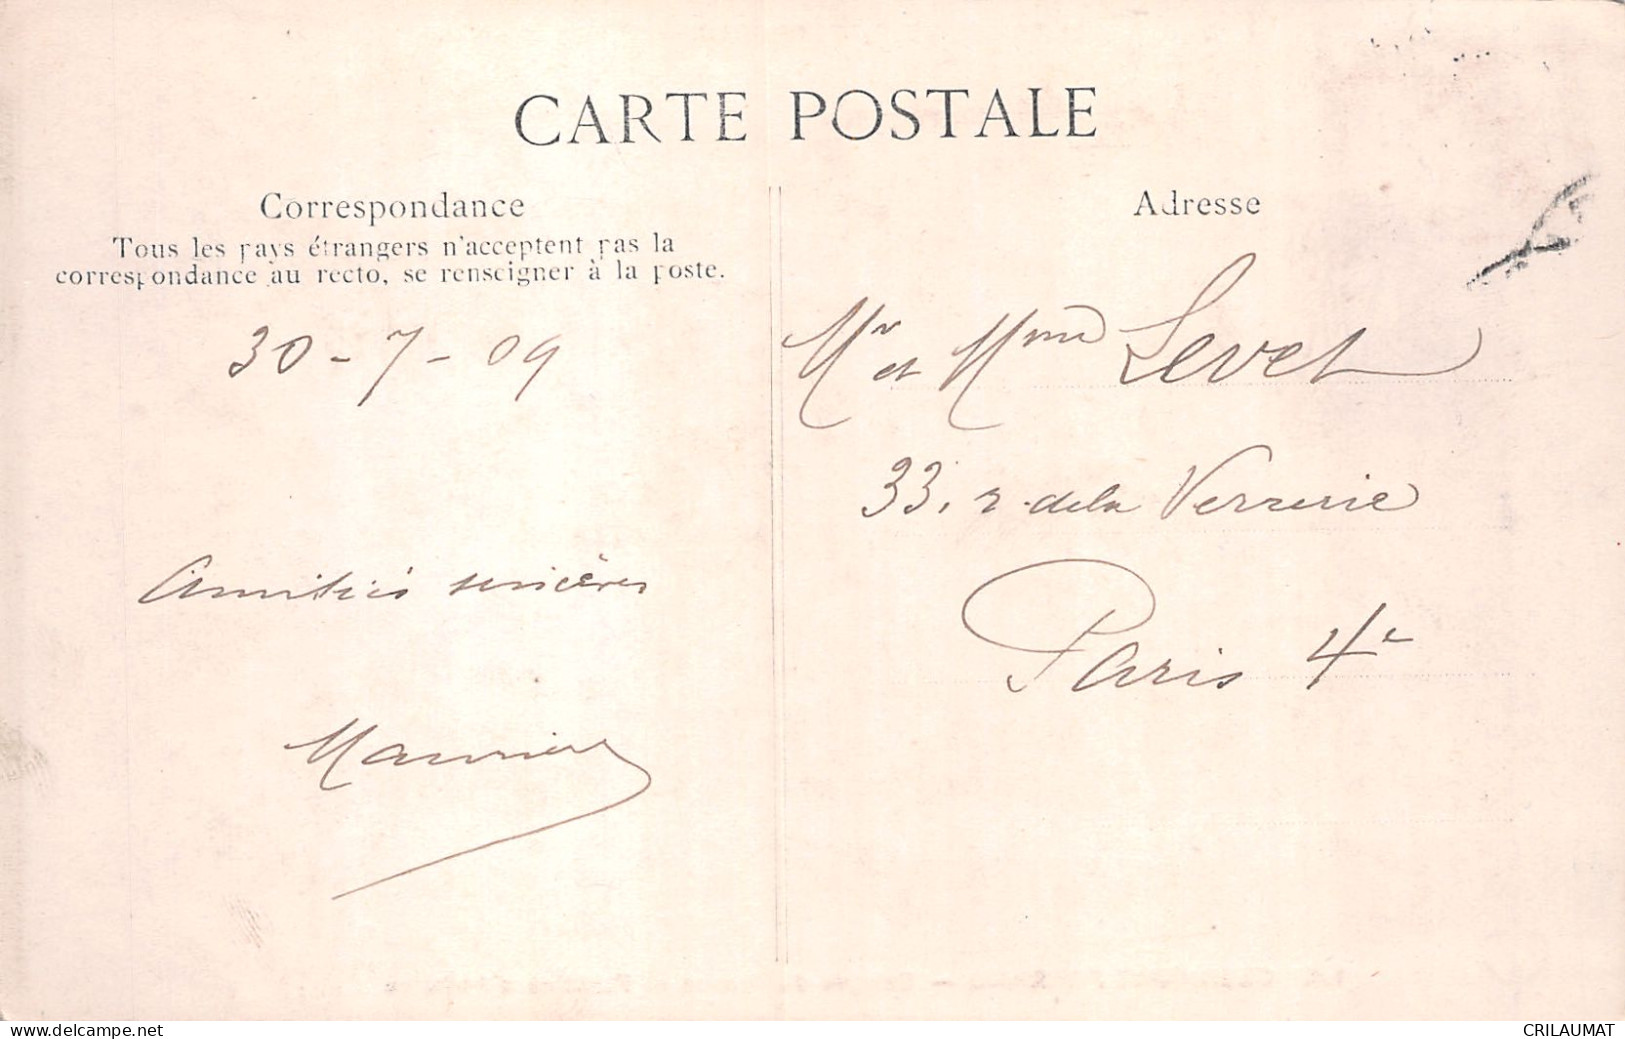 CARTE POSTALE
Correspondance
Tous les pays étrangers n'acceptent pas la
correspondance au recto, se renseigner à la poste.
30-7-09
Amitiés sincères
Adresse
Mr et Mme Levet
33, r. de la Verrerie
Paris 4e
www.delcampe.net
CRILAUMAT